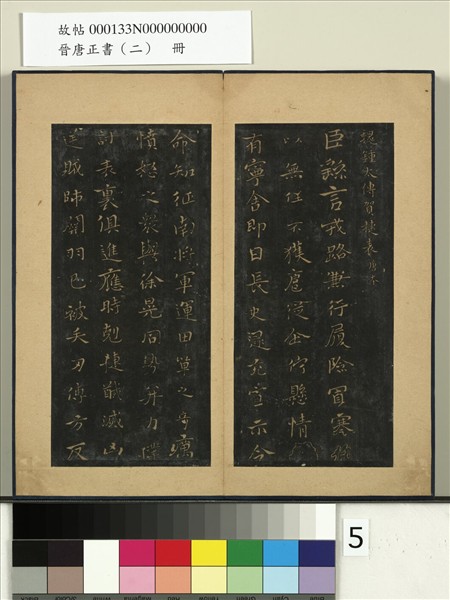 故帖 000133N000000000
晉唐正書（二） 冊
鍾太傅賀捷表
臣繇言戎路兼行履險冒寒
以無任不獲扈從企佇懸情
有寧舍即日長史逯充宣示令
命知征南將軍運田單之奇厲
憤怒之眾與徐晃同勢并力撲
討表裏俱進應時剋捷馘滅凶
逆賊帥關羽已被矢刃傅方反
5
Blue Cyan Green Yellow Red Magenta White 3/Color Black